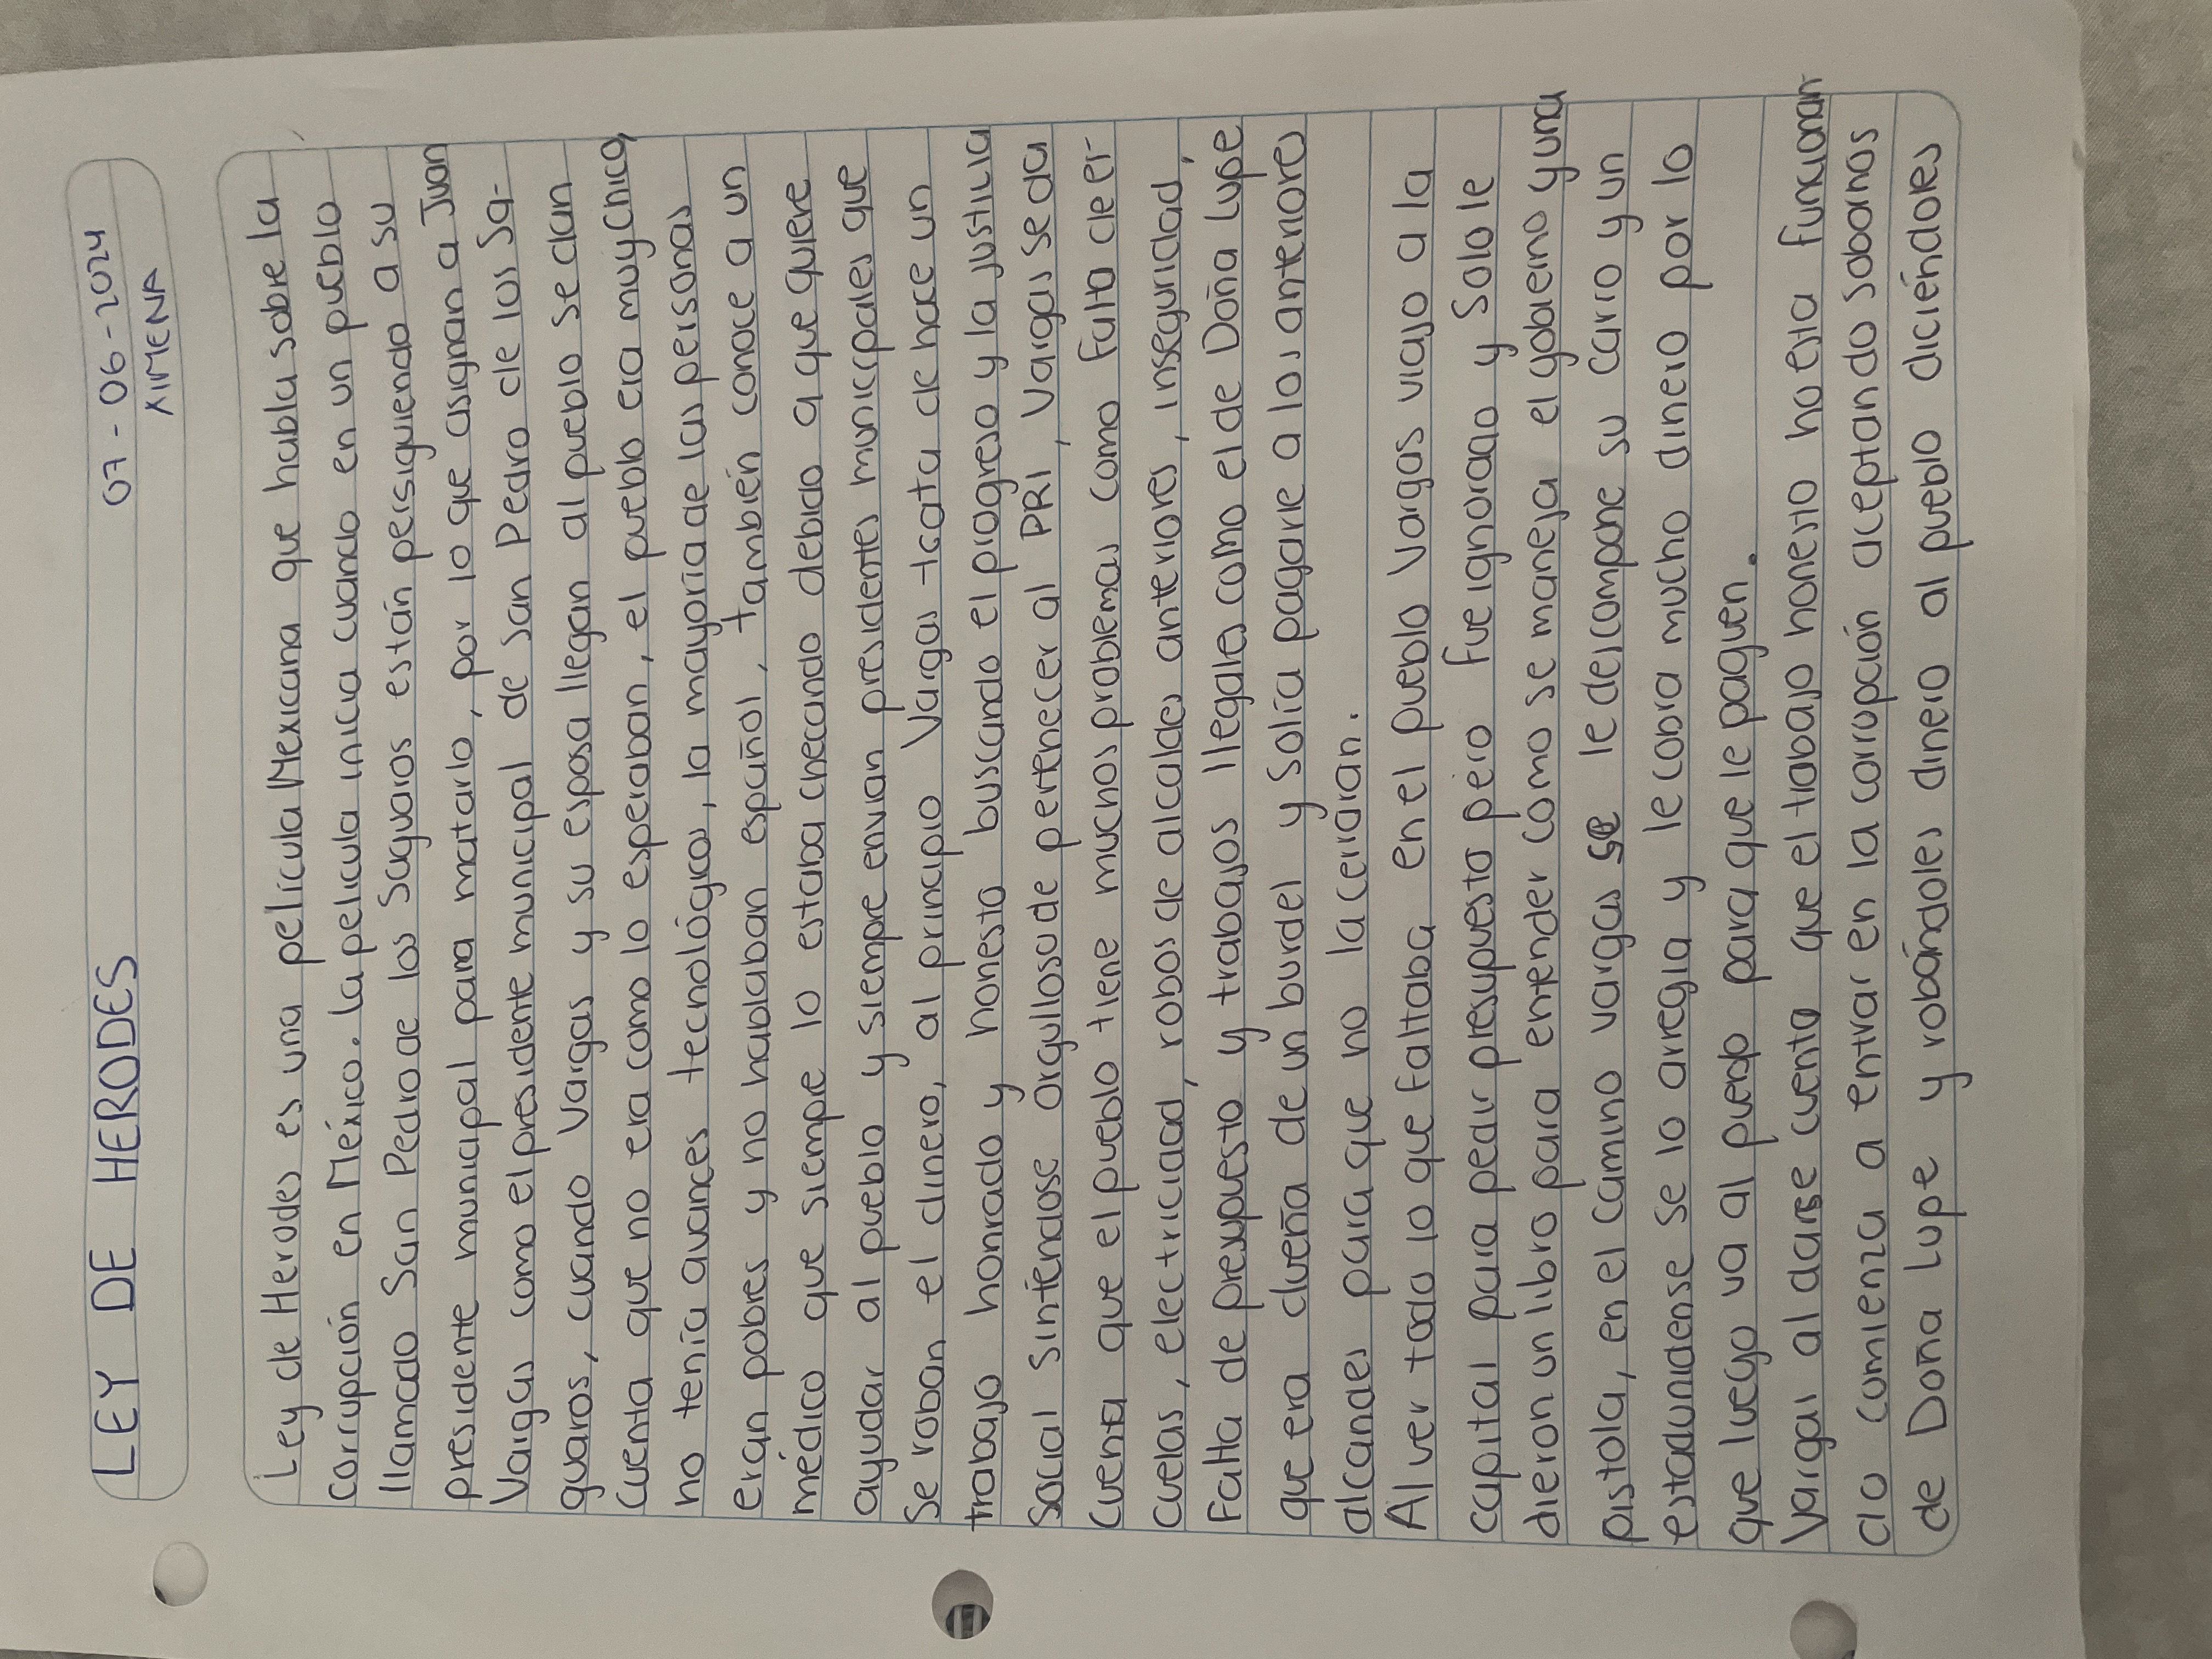 LEY DE HERODES
07-06-2024
XIMENA
Ley de Herodes es una película Mexicana que habla sobre la
corrupción en México. la pelicula inicia cuando en un pueblo
llamado San Pedro de los Saguaros están persiguiendo a su
presidente municipal para matarlo, por lo que asignan a Juan
Vargas como el presidente municipal de san Pedro de los Sa-
guaros, cuando Vargas y su esposa llegan al pueblo se dan
cuenta que no era como lo esperaban, el pueblo era muy chico,
no tenía avances tecnológicos, la mayoría de las personas
eran pobres y no hablaban español, también conoce a un
médico que siempre lo estaba checando debido a que quiere
ayudar al pueblo y siempre envian presidentes municipales que
se roban el dinero, al principio Vargas trata de hace un
trabajo honrado y honesto buscando el progreso y la justicia
social sintiendose orgulloso de pertenecer al PRI, Vargas se da
cuenta que el pueblo tiene muchos problemas como falta de er-
cuelas, electricidad, robos de alcaldes anteriores, inseguridad,
Falta de presupuesto y trabajos llegales como el de Doña Lupe
que era dueña de un burdel y solía pagarle a los anteriores
alcandes para que no la cerraran.
Al ver todo lo que faltaba en el pueblo Vargas viajo a la
capital para pedir presupuesto pero fue ignorado y solo le
dieron un libro para entender como se maneja el gobierno y una
pistola, en el camino vargas se le descompone su carro y un
estadunidense se lo arregla y le cobra mucho dinero por lo
que luego va al pueblo para que le paguen.
Vargas al darse cuenta que el trabajo honesto no esta funcionan
do comienza a entrar en la corrupción aceptando sobornos
de Doña Lupe y robándoles dinero al pueblo diciéndoles